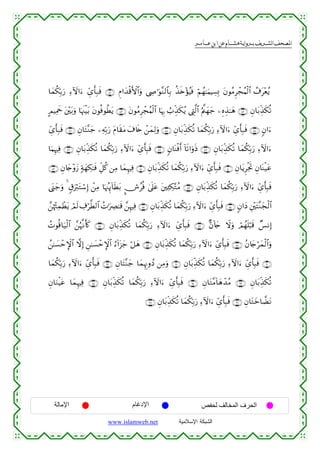 المصحف الشريف برواية هشام عن ابن عامر
يُعْرَفُ ٱلْمُجْرِمُونَ بِسِيمَٰهُمْ فَيُؤْخَذُ بِٱلنَّوَٰصِى وَٱلْأَقْدَامِ ۝ فَبِأَىِّ ءَالَآءِ رَبِّكُمَا
تُكَذِّبَانِ ۝ هَٰذِهِۦ جَهَنَّمُ ٱلَّتِى يُكَذِّبُ بِهَا ٱلْمُجْرِمُونَ ۝ يَطُوفُونَ بَيْنَهَا وَبَيْنَ حَمِيمٍ
ءَانٍ ۝ فَبِأَىِّ ءَالَآءِ رَبِّكُمَا تُكَذِّبَانِ ۝ وَلِمَنْ خَافَ مَقَامَ رَبِّهِۦ جَنَّتَانِ ۝ فَبِأَىِّ
ءَالَآءِ رَبِّكُمَا تُكَذِّبَانِ ۝ ذَوَاتَآ أَفْنَانٍ ۝ فَبِأَىِّ ءَالَآءِ رَبِّكُمَا تُكَذِّبَانِ ۝ فِيهِمَا
عَيْنَانِ تَجْرِيَانِ ۝ فَبِأَىِّ ءَالَآءِ رَبِّكُمَا تُكَذِّبَانِ ۝ فِيهِمَا مِن كُلِّ فَٰكِهَةٍ زَوْجَانِ ۝
فَبِأَىِّ ءَالَآءِ رَبِّكُمَا تُكَذِّبَانِ ۝ مُتَّكِـِٔينَ عَلَىٰ فُرُشٍۭ بَطَآئِنُهَا مِنْ إِسْتَبْرَقٍ ۚ وَجَنَى
ٱلْجَنَّتَيْنِ دَانٍ ۝ فَبِأَىِّ ءَالَآءِ رَبِّكُمَا تُكَذِّبَانِ ۝ فِيهِنَّ قَٰصِرَٰتُ ٱلطَّرْفِ لَمْ يَطْمِثْهُنَّ
إِنسٌ قَبْلَهُمْ وَلَا جَآنٌّ ۝ فَبِأَىِّ ءَالَآءِ رَبِّكُمَا تُكَذِّبَانِ ۝ كَأَنَّهُنَّ ٱلْيَاقُوتُ
وَٱلْمَرْجَانُ ۝ فَبِأَىِّ ءَالَآءِ رَبِّكُمَا تُكَذِّبَانِ ۝ هَلْ جَزَآءُ ٱلْإِحْسَٰنِ إِلَّا ٱلْإِحْسَٰنُ
۝ فَبِأَىِّ ءَالَآءِ رَبِّكُمَا تُكَذِّبَانِ ۝ وَمِن دُونِهِمَا جَنَّتَانِ ۝ فَبِأَىِّ ءَالَآءِ رَبِّكُمَا
تُكَذِّبَانِ ۝ مُدْهَآمَّتَانِ ۝ فَبِأَىِّ ءَالَآءِ رَبِّكُمَا تُكَذِّبَانِ ۝ فِيهِمَا عَيْنَانِ
نَضَّاخَتَانِ ۝ فَبِأَىِّ ءَالَآءِ رَبِّكُمَا تُكَذِّبَانِ ۝
الحرف المخالف لحفص الإدغام الإمالة
الشبكة الإسلامية www.islamweb.net